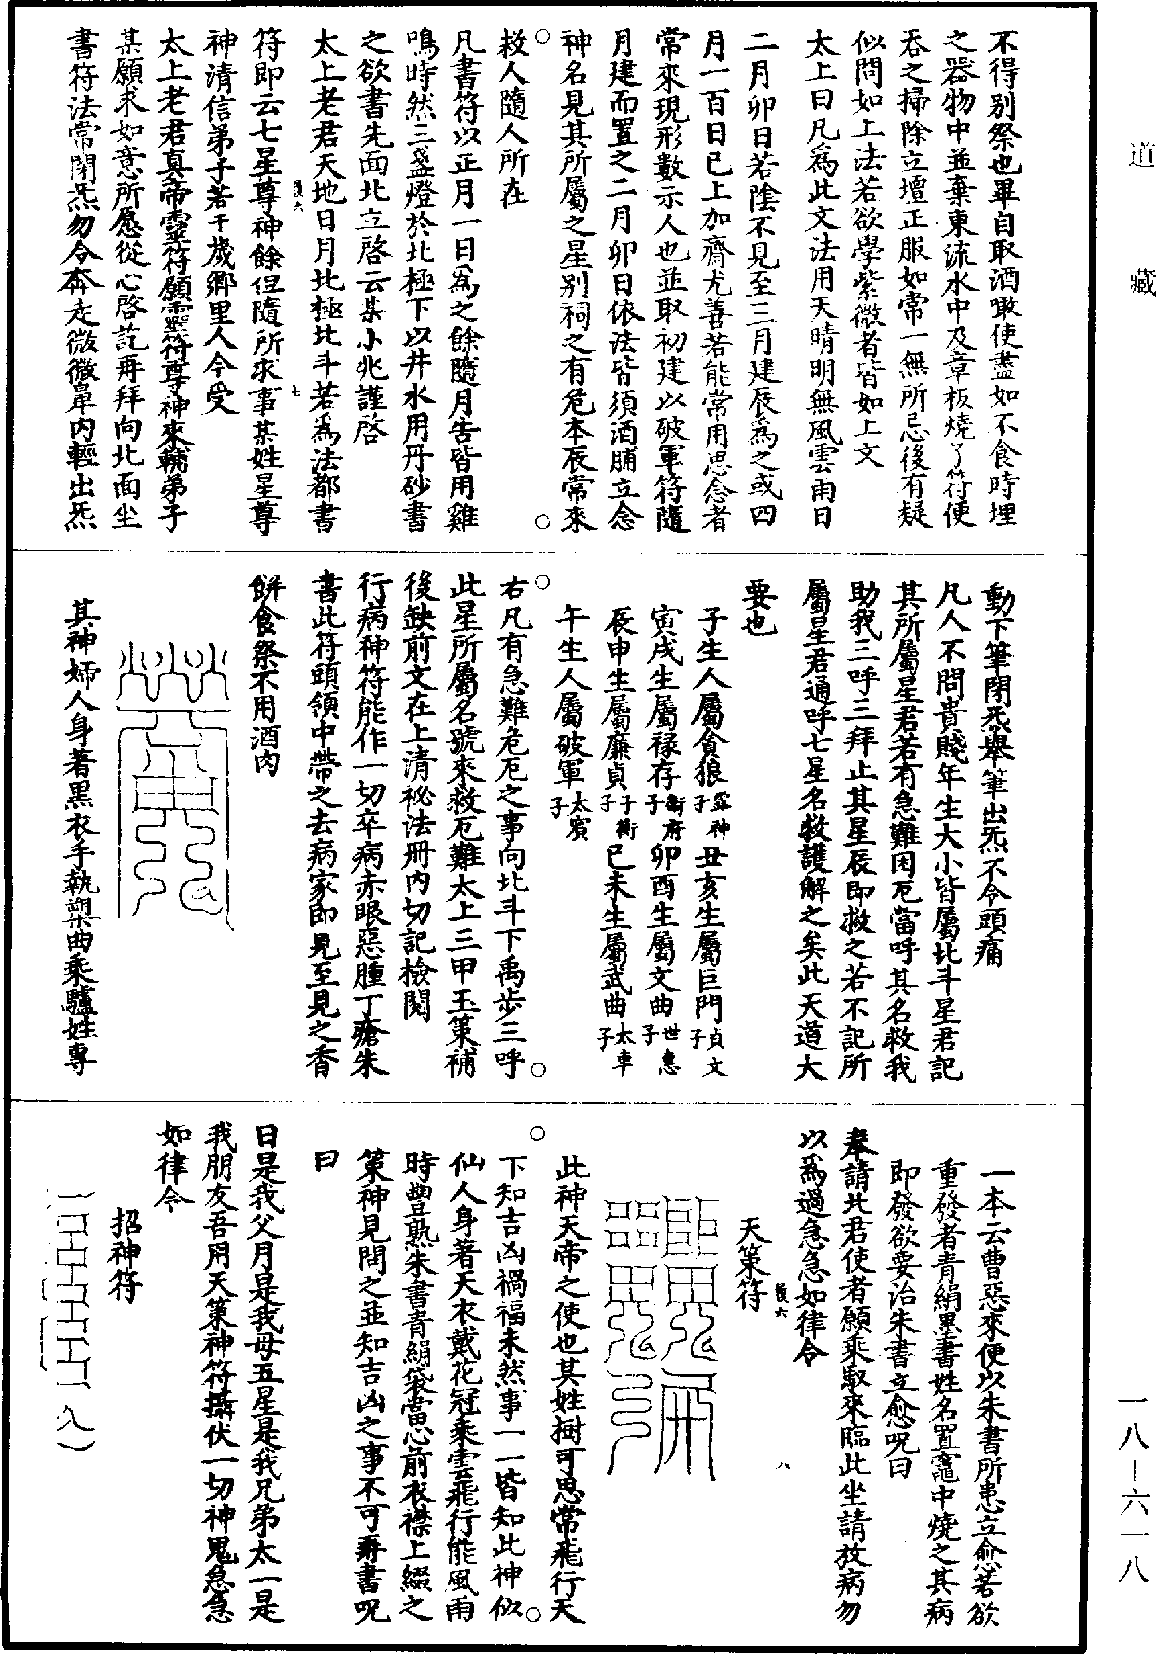 道藏
不得別祭也畢自取酒噉使盡如不食時埋
之器物中並棄東流水中及章板燒了符便
吞之掃除立壇正服如常一無所忌後有疑
似問如上法若欲學紫微者皆如上文
太上曰凡為此文法用天晴明無風雲雨日
二月卯日若陰不見至三月建辰為之或四
月一百日已上加齋尤善若能常用思念者
常來現形數示人也並取初建以破軍符隨
月建而置之二月卯日依法皆須酒脯立念
神名見其所屬之星別祠之有危本辰常來
救人隨人所在
凡書符以正月一日為之餘隨月吉皆用雞
鳴時然三盞燈於北極下以井水用丹砂書
之欲書先面北立啓云某小兆謹啓
太上老君天地日月北極北斗若為法都書
符即云七星尊神餘但隨所求事某姓星尊
神清信弟子若干歲鄉里人今受
太上老君真帝靈符願靈符尊神來輔弟子
某願求如意所愿從心啓訖再拜向北面坐
書符法常閉炁勿令奔走微微鼻內輕出炁
動下筆閉炁舉筆出炁不令頭痛
凡人不問貴賤年生大小皆屬北斗星君記
其所屬星君若有急難困厄當呼其名救我
助我三呼三拜止其星辰即救之若不記所
屬星君通呼七星名救護解之矣此天道大
要也
子生人屬貪狼 神子 丑亥生屬巨門 貞文子
寅戌生屬祿存 子 卯酉生屬文曲 世惠子
辰申生屬廉貞 衛子 巳未生屬武曲 太車子
午生人屬破軍 太賓子
右凡有急難危厄之事向北斗下禹步三呼
此星所屬名號來救厄難太上三甲玉策補
後缺前文在上清祕法冊內切記檢閱
行病神符能作一切卒病赤眼惡腫丁瘡朱
書此符頭領中帶之去病家即見至見之香
餅食祭不用酒肉
其神婦人身著黑衣手執槊曲乘驢姓專
一本云曹惡來便以朱書所患立愈若欲
重發者青絹墨書姓名置竈中燒之其病
即發欲要治朱書立愈呪曰
奉請此君使者願乘馭來臨此坐請放病勿
以為過急急如律令
天策符
此神天帝之使也其姓樹可思常飛行天
下知吉凶禍福未然事一一皆知此神似
仙人身著天衣戴花冠乘雲飛行能風雨
時豐熟朱書青絹袋當心前衣襟上綴之
策神見問之並知吉凶之事不可再書呪
曰
日是我父月是我母五星是我兄弟太一是
我朋友吾用天策神符攝伏一切神鬼急急
如律令
招神符
一八—六一八